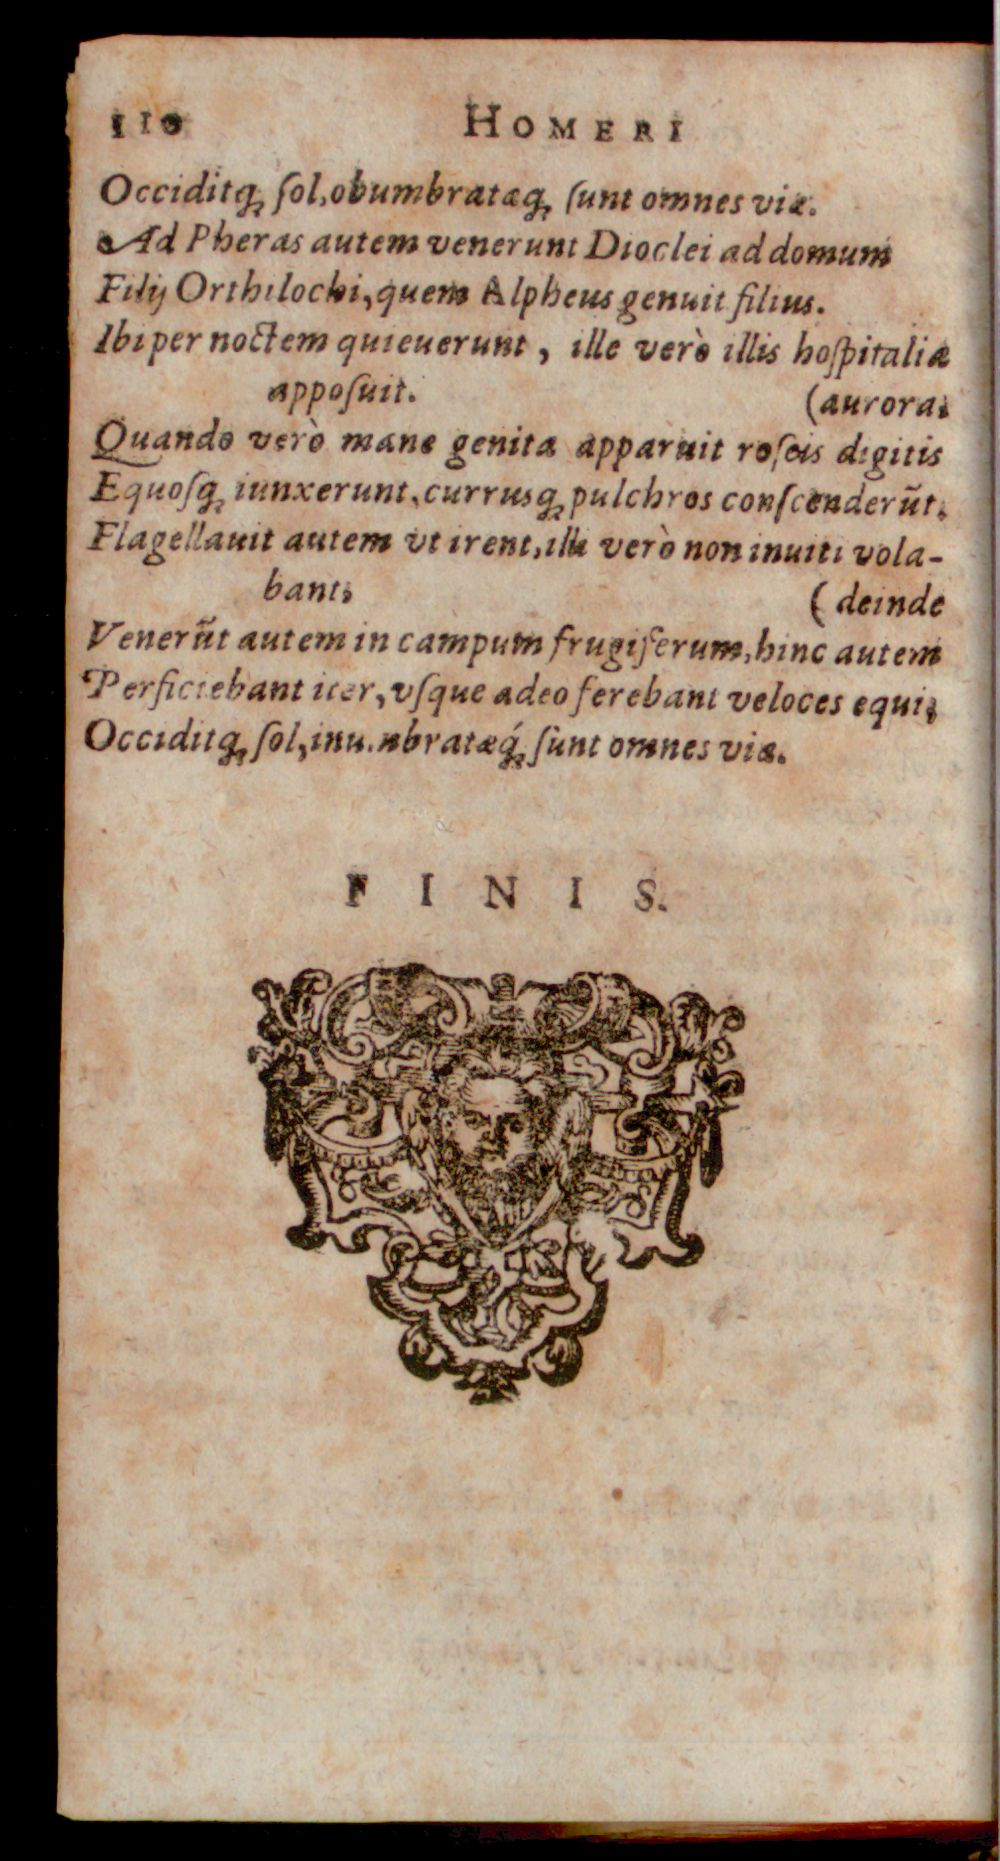 110 HOMERI
Occiditq; ſol, obumbratæq; ſunt omnes viæ.
Ad Pheras autem venerunt Dioclei ad domum
Filij Orthilochi, quem Alpheus genuit filius.
Ibi per noctem quieuerunt, ille verò illis hoſpitalia
appoſuit. (aurora,
Quando verò mane genita apparuit roſeis digitis
Equoſq; iunxerunt, currusq; pulchros conſcenderũt,
Flagellauit autem vt irent, illi verò non inuiti vola-
bant, (deinde
Venerũt autem in campum frugiferum, hinc autem
Perficiebant iter, vſque adeo ferebant veloces equi,
Occiditq; ſol, inumbratæq́; ſunt omnes viæ.
FINIS.